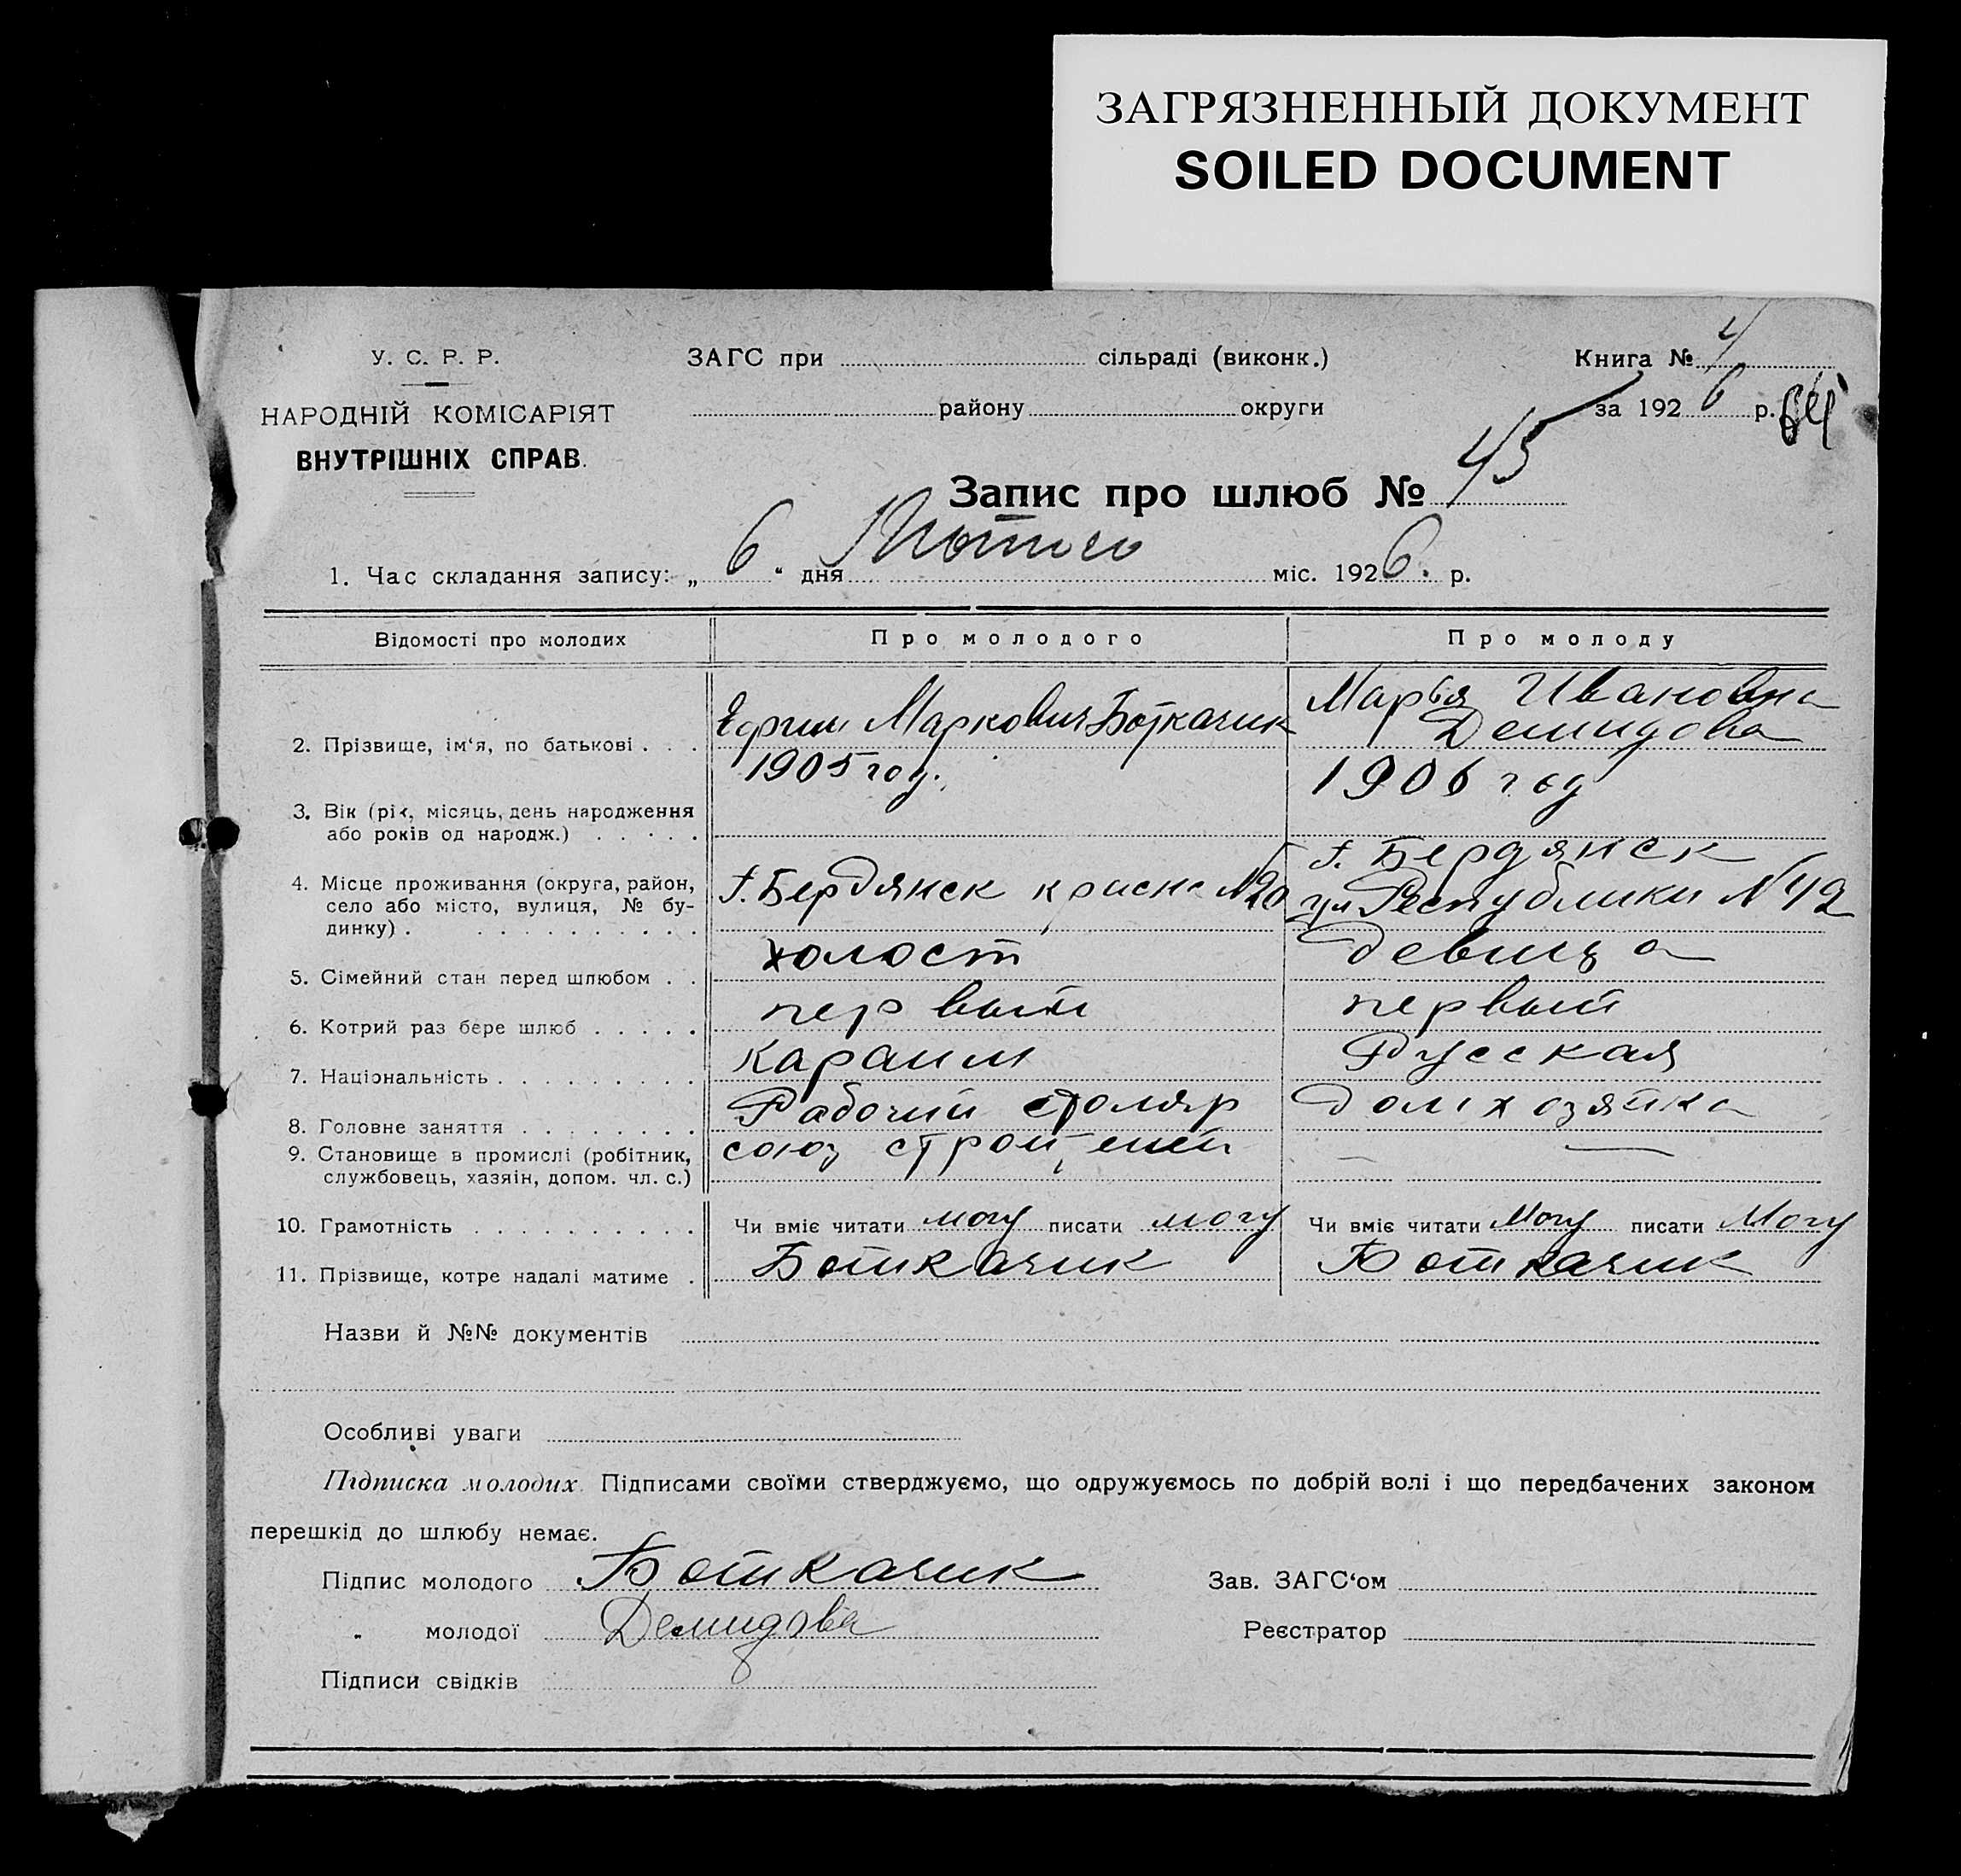 ЗАГРЯЗНЕННЫЙ ДОКУМЕНТ
SOILED DOCUMENT
У. С. Р. Р.
НАРОДНІЙ КОМІСАРІЯТ
ВНУТРІШНІХ СПРАВ.
ЗАГС при сільраді (виконк.)
району округи
Книга № 4
за 1926 р.
64
Запис про шлюб № 45
1. Час складання запису: „6“ дня Лютого міс. 1926. р.
Відомості про молодих Про молодого Про молоду
2. Прізвище, ім‘я, по батькові . . .
Ефрим Маркович Боткачик
Марья Ивановна
Демидова
3. Вік (рік, місяць, день народження
або років од народж.) . . . . .
1905 год.
1906 год
4. Місце проживання (округа, район,
село або місто, вулиця, № бу-
динку) . . . . . . . . . . .
г. Бердянск красн № 20
г. Бердянск
ул Республики № 42
5. Сімейний стан перед шлюбом . . холост девица
6. Котрий раз бере шлюб . . . . . первый первый
7. Національність . . . . . . . . . караим Русская
8. Головне заняття . . . . . . . . Рабочий столяр домхозяйка
9. Становище в промислі (робітник,
службовець, хазяїн, допом. чл. с.)
союз строителей — —
10. Грамотність . . . . . . . . . . Чи вміє читати могу писати могу Чи вміє читати могу писати могу
11. Прізвище, котре надалі матиме . Боткачик Боткачик
Назви й №№ документів
Особливі уваги
Підписка молодих. Підписами своїми стверджуємо, що одружуємось по добрій волі і що передбачених законом
перешкід до шлюбу немає.
Підпис молодого Боткачик Зав. ЗАГС‘ом
„ молодої Демидова Реєстратор
Підписи свідків